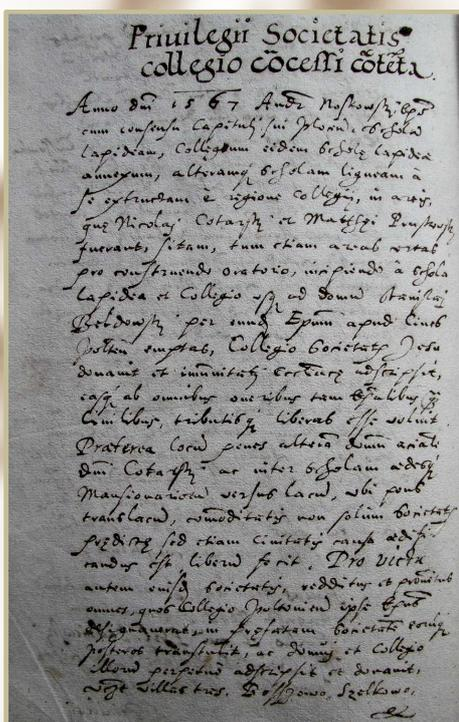 Priuilegii Societatis
collegio cōcessi cōtēta.
Anno dni 1567 Andr. Noskowskj Eps
cum consensu Capituli sui Plocen. Scholā
lapideam, Collegium eidem Scholę lapideę
annexum, alteramq scholam ligneam à
se extructam è regione Collegij, in areis,
quę Nicolaj Cotarskj et Matthęi
fuerant, sitam, tum etiam areas certas
pro construendo oratorio, incipiendo à schola
lapidea et Collegio usq ad domū Stanislaj
per eundē Epum apud Ciues
emptas, Collegio Societatis Jesu
donauit et immunitatj adscripsit,
easq ab omnibus oneribus tam
ciuilibus, tributisq liberas esse uoluit.
Pręterea locū penes alterā domū
dni Cotarskj ac inter scholam ędesq
Mansionariorū uersus lacū, ubi pons
trans lacū, cōmoditatis non solum Societatis
prędictę, sed etiam Ciuitatis causa ędifi-
candus est, liberū fecit. Pro uictu
autem eiusdē Societatis, redditus et prouētus
omnes, quos Collegio ipse Epus
designauerat, in pręfatam Societatē eiusq
posteros transtulit, ac domuj et Collegio
illorū perpetuo adscripsit et donauit,
uillas tres, Szelkowo,